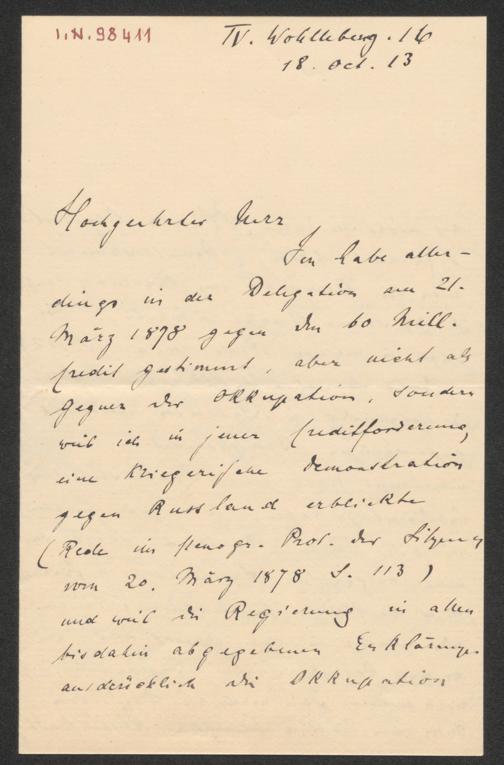 I.N. 98411
IV. Wohllebeng. 16
18. Oct. 13
Hochgeehrter Herr
Ich habe aller-
dings in der Delegation am 21.
März 1878 gegen den 60 Mill.
Credit gestimmt, aber nicht als
Gegner der Okkupation, sondern
weil ich in jener Creditforderung
eine kriegerische Demonstration
gegen Russland erblickte
(Rede im stenogr. Prot. der Sitzung
vom 20. März 1878 S. 113)
und weil die Regierung in allen
bis dahin abgegebenen Erklärungen
ausdrücklich die Okkupation